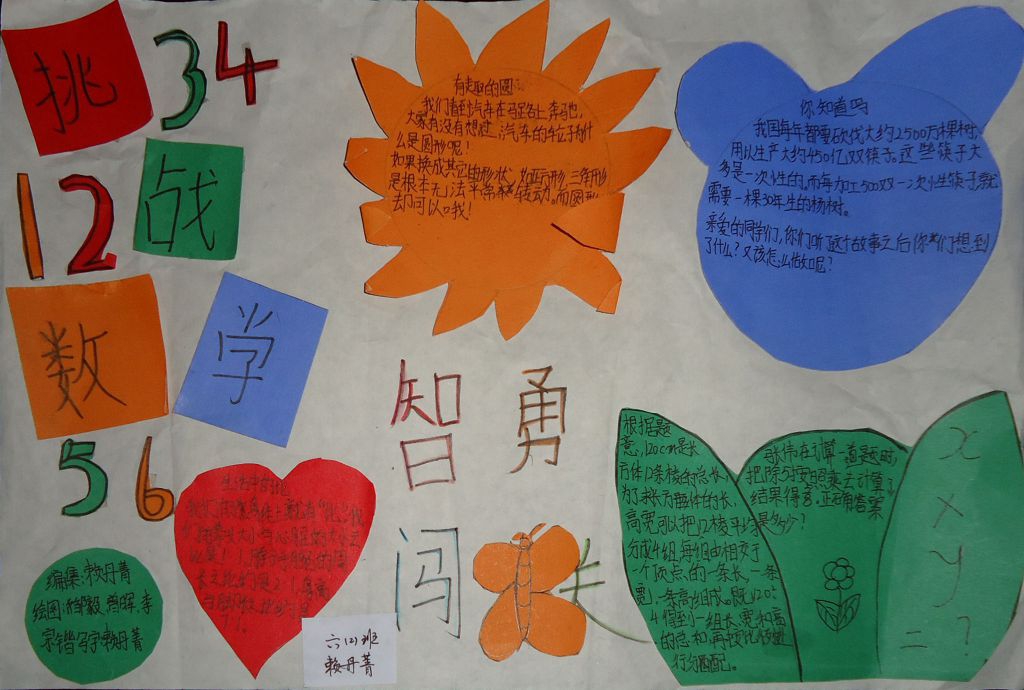 挑
34
12
战
数
学
56
有趣的圆
我们看到汽车在马路上奔驰,
大家有没有想过,汽车的轮子为什
么是圆形呢!
如果换成其它的形状,如正方形,三角形
是根本无法平常转动。而圆形
去卩可以哦!
你知道吗
我国每年都要砍伐大约2500万棵树,
用以生产大约450亿双筷子。这些筷子大
多是一次性的,而每加工500双一次性筷子就
需要一棵30年生的杨树。
亲爱的同学们,你们听这个故事之后你们想到
了什么?又该怎么做呢?
智 勇
闯 关
生活中的比
编集:赖丹菁
绘图:
赖丹菁
六(2)班
赖丹菁
根据题
意,120cm是长
方体12条棱的总长,
为了求长方体的长,
高宽可以把12棱平均
分成4组,每组由相交于
一个顶点的一条长一条
宽,一条高组成。既120÷
4得到一组长宽和高
的总和,再按比例进
行分配。
张伟在计算一道题时,
把除以按照乘去计算了,
结果得,正确答案
是多少?
x
×
y
= ?